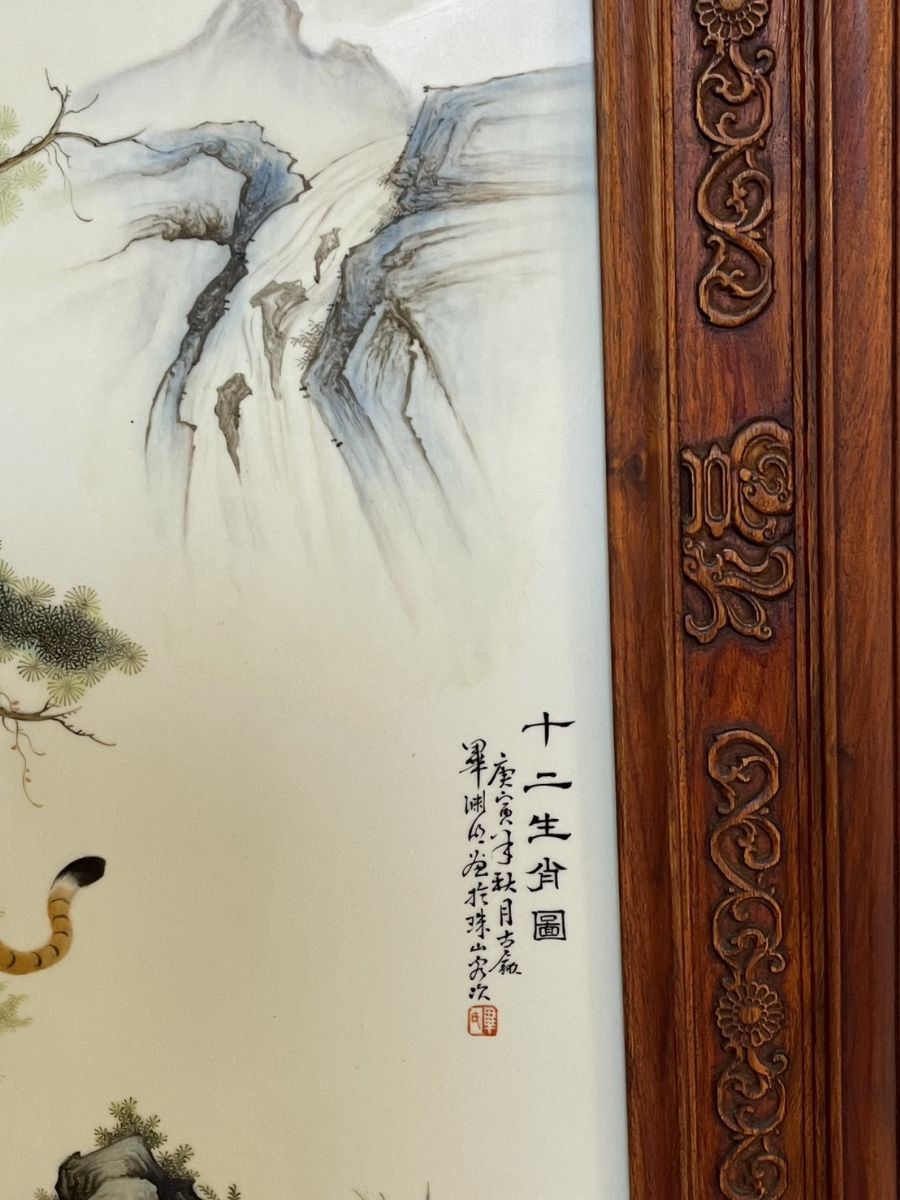 十二生肖圖
庚寅年秋月古歙
畢淵明畫於珠山客次
畢氏